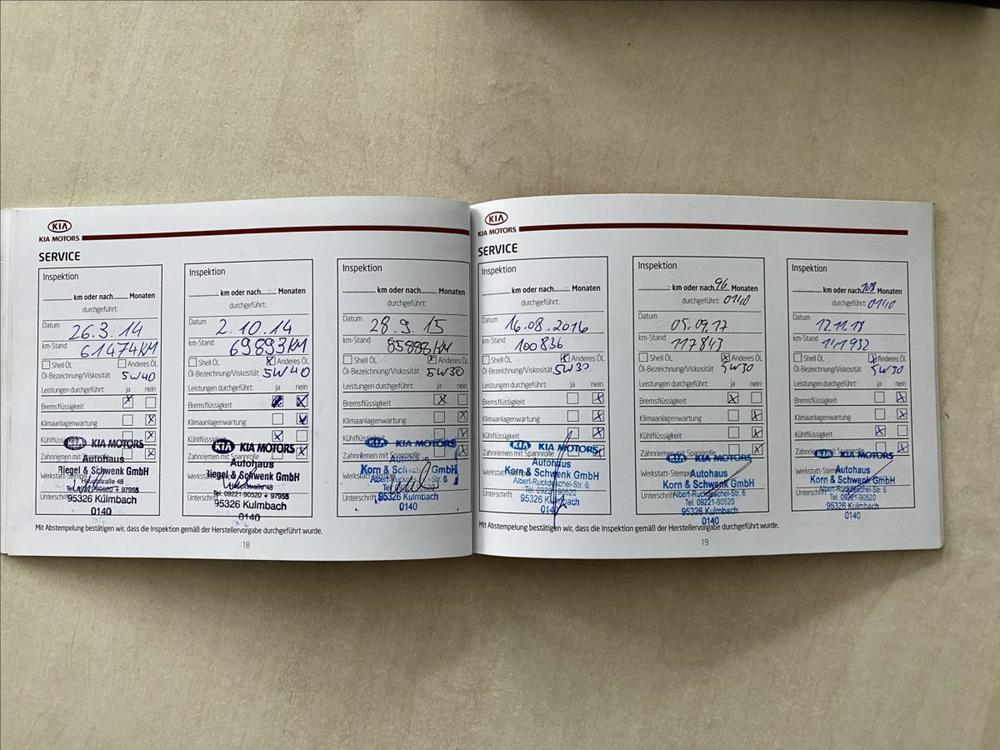 KIA
KIA MOTORS
SERVICE
Inspektion
km oder nach Monaten
durchgeführt:
Datum 26.3.14
km-Stand 61474KM
Shell ÖL Anderes ÖL
Öl-Bezeichnung/Viskosität 5W40
Leistungen durchgeführt: ja nein
Bremsflüssigkeit X
Klimaanlagenwartung X
Kühlflüssigkeit X
Zahnriemen mit Spannrolle X
KIA MOTORS
Autohaus
Riegel & Schwenk GmbH
Hauptstraße 48
Tel. 09221-90520 + 97955
95326 Kulmbach
0140
Unterschrift
Inspektion
km oder nach Monaten
durchgeführt:
Datum 2.10.14
km-Stand 69893KM
Shell ÖL X Anderes ÖL
Öl-Bezeichnung/Viskosität 5W40
Leistungen durchgeführt: ja nein
Bremsflüssigkeit X
Klimaanlagenwartung X
Kühlflüssigkeit X
Zahnriemen mit Spannrolle X
KIA MOTORS
Autohaus
Riegel & Schwenk GmbH
Hauptstraße 48
Tel. 09221-90520 + 97955
95326 Kulmbach
0140
Unterschrift
Inspektion
km oder nach Monaten
durchgeführt:
Datum 28.9.15
km-Stand
Shell ÖL X Anderes ÖL
Öl-Bezeichnung/Viskosität 5W30
Leistungen durchgeführt: ja nein
Bremsflüssigkeit X
Klimaanlagenwartung X
Kühlflüssigkeit X
Zahnriemen mit Spannrolle X
KIA MOTORS
Autohaus
Korn & Schwenk GmbH
95326 Kulmbach
0140
Unterschrift
Mit Abstempelung bestätigen wir, dass die Inspektion gemäß der Herstellervorgabe durchgeführt wurde.
18
KIA
KIA MOTORS
SERVICE
Inspektion
km oder nach Monaten
durchgeführt:
Datum 16.08.2016
km-Stand 100836
Shell ÖL X Anderes ÖL
Öl-Bezeichnung/Viskosität 5W30
Leistungen durchgeführt: ja nein
Bremsflüssigkeit X
Klimaanlagenwartung X
Kühlflüssigkeit X
Zahnriemen mit Spannrolle X
KIA MOTORS
Autohaus
Korn & Schwenk GmbH
Albert-Ruckdeschel-Str. 6
Tel. 09221-90520
95326 Kulmbach
0140
Unterschrift
Inspektion
km oder nach 96 Monaten
durchgeführt: 0140
Datum 05.09.17
km-Stand 117843
Shell ÖL X Anderes ÖL
Öl-Bezeichnung/Viskosität 5W30
Leistungen durchgeführt: ja nein
Bremsflüssigkeit X
Klimaanlagenwartung X
Kühlflüssigkeit X
Zahnriemen mit Spannrolle X
KIA MOTORS
Werkstatt-Stempel Autohaus
Korn & Schwenk GmbH
Albert-Ruckdeschel-Str. 6
Tel. 09221-90520
95326 Kulmbach
0140
Unterschrift
Inspektion
km oder nach 108 Monaten
durchgeführt: 0140
Datum 12.11.18
km-Stand 141932
Shell ÖL X Anderes ÖL
Öl-Bezeichnung/Viskosität 5W30
Leistungen durchgeführt: ja nein
Bremsflüssigkeit X
Klimaanlagenwartung X
Kühlflüssigkeit X
Zahnriemen mit Spannrolle X
KIA MOTORS
Werkstatt-Stempel Autohaus
Korn & Schwenk GmbH
Albert-Ruckdeschel-Str. 6
Tel. 09221-90520
95326 Kulmbach
0140
Unterschrift
Mit Abstempelung bestätigen wir, dass die Inspektion gemäß der Herstellervorgabe durchgeführt wurde.
19